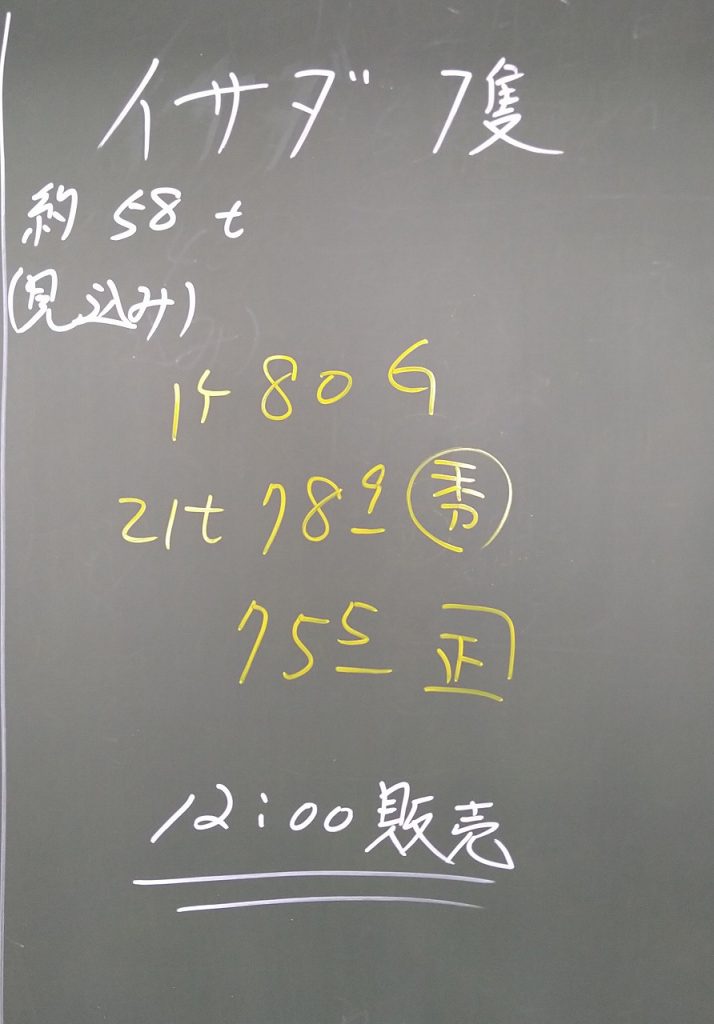 イサダ 7隻
約 58 t
(見込み)
1ケ 80 G
21t 78 9 秀
75 5 正
12:00 販売